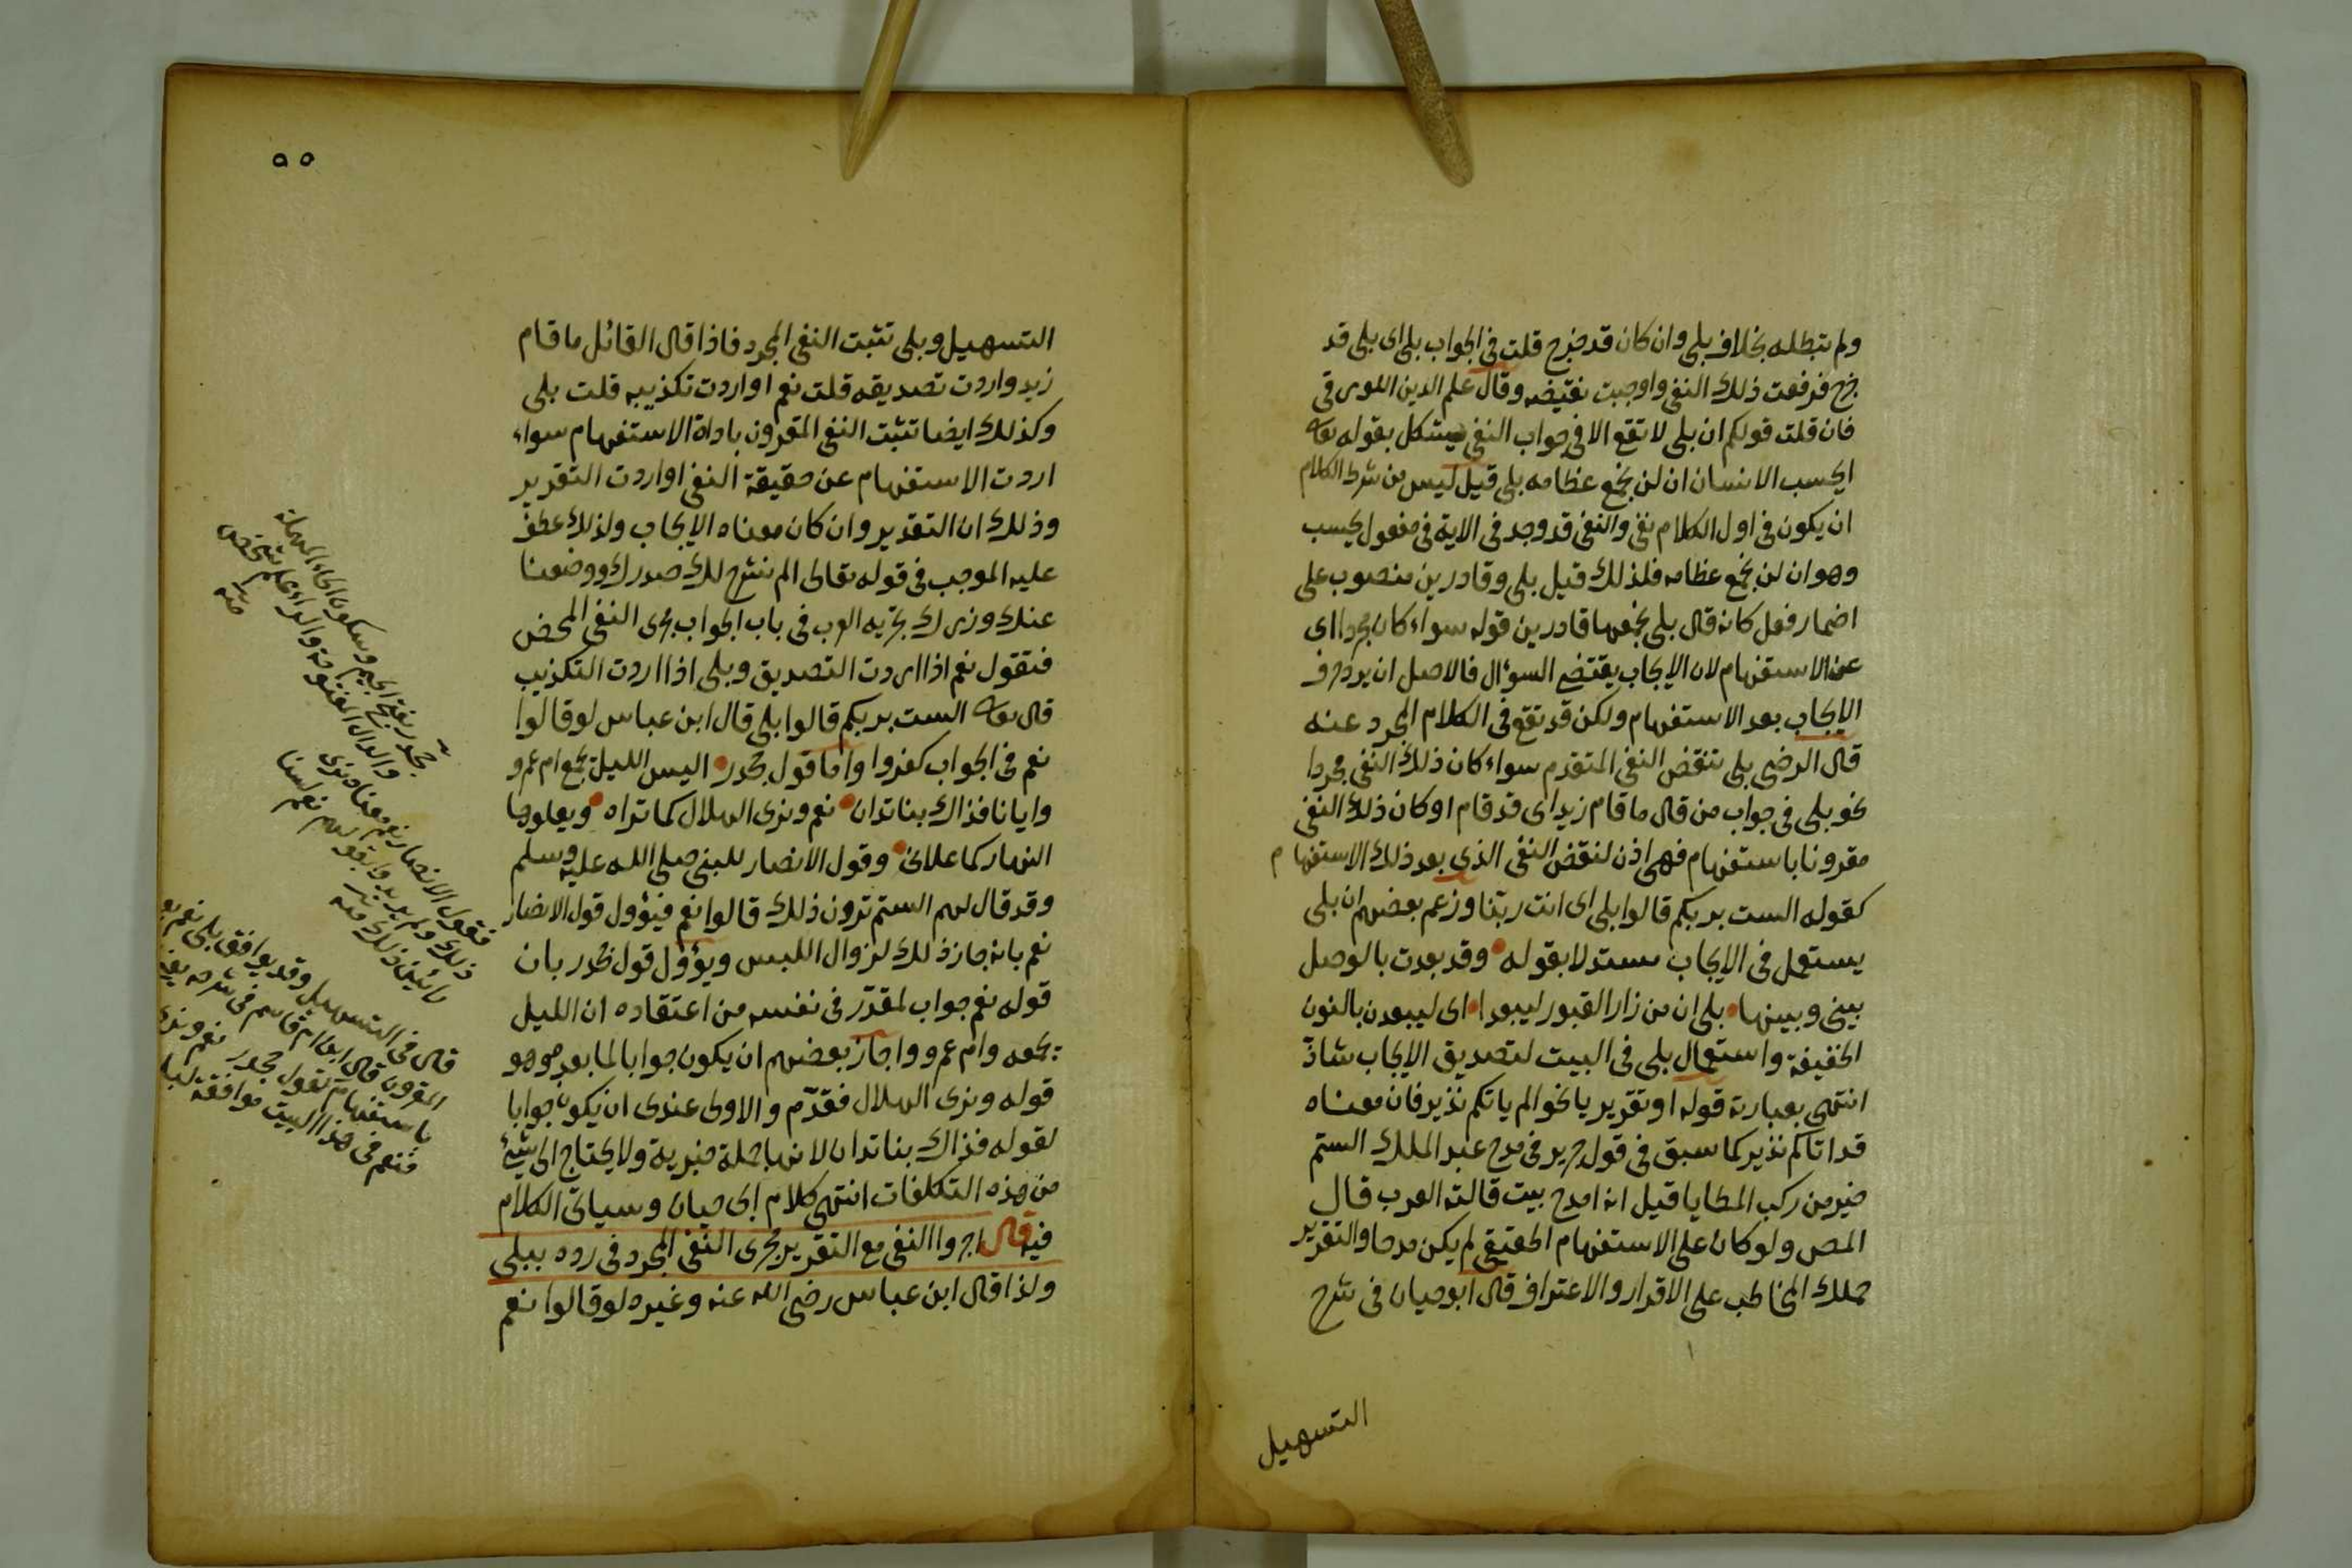 ولم تبطله بخلاف بلى وان كان قد خرج قلت في الجواب بلى اى بلى قد
خرج فرفعت ذلك النفى واوجبت نقيضه وقال علم الدين اللورقى
فان قلت قولكم ان بلى لا تقع الا في جواب النفى يشكل بقوله تعه
ايحسب الانسان ان لن نجمع عظامه بلى قيل ليس من شرط الكلام
ان يكون في اول الكلام نفى والنفى قد وجد في الاية في مفعول يحسب
وهو ان لن نجمع عظامه فلذلك قيل بلى وقادرين منصوب على
اضمار فعل كانه قال بلى نجمعها قادرين قوله سواء كان مجردا اى
عن الاستفهام لان الايجاب يقتضى السوٴال فالاصل ان يرد حرف
الايجاب بعد الاستفهام ولكن قد تقع في الكلام المجرد عنه
قال الرضى بلى تنقض النفى المتقدم سواء كان ذلك النفى مجردا
نحو بلى في جواب من قال ما قام زيد اى قد قام او كان ذلك النفى
مقرونا باستفهام فهى اذن لنقض النفى الذى بعد ذلك الاستفهام
كقوله الست بربكم قالوا بلى اى انت ربنا وزعم بعضهم ان بلى
يستعمل في الايجاب مستدلا بقوله وقد بعدت بالوصل
بينى وبينها بلى ان من زار القبور ليبعدا اى ليبعدن بالنون
الخفيفة واستعمال بلى في البيت لتصديق الايجاب شاذ
انتهى بعبارته قوله او تقريريا نحو الم ياتكم نذير فان معناه
قد اتاكم نذير كما سبق في قول جرير في مدح عبد الملك الستم
خير من ركب المطايا قيل انه امدح بيت قالته العرب قال
المص ولو كان على الاستفهام الحقيقى لم يكن مدحا والتقرير
حملك المخاطب على الاقرار والاعتراف قال ابو حيان في شرح
التسهيل
٥٥
التسهيل وبلى تثبت النفى المجرد فاذا قال القائل ما قام
زيد واردت تصديقه قلت نعم او اردت تكذيبه قلت بلى
وكذلك ايضا تثبت النفى المقرون باداة الاستفهام سواء
اردت الاستفهام عن حقيقة النفى او اردت التقرير
وذلك ان التقدير وان كان معناه الايجاب ولذلك عطف
عليه الموجب في قوله تعالى الم نشرح لك صدرك ووضعنا
عنك وزرك تجريه العرب في باب الجواب مجرى النفى المحض
فتقول نعم اذا اردت التصديق وبلى اذا اردت التكذيب
قال تعه الست بربكم قالوا بلى قال ابن عباس لو قالوا
نعم في الجواب كفروا واما قول جحدر اليس الليل يجمع ام عمرو
وايانا فذاك بنا تدان نعم ونرى الهلال كما تراه ويعلوها
النهار كما علانى وقول الانصار للنبى صلى الله عليه وسلم
وقد قال لهم الستم ترون ذلك قالوا نعم فيؤول قول الانصار
نعم بانه جاز ذلك لزوال اللبس ويؤول قول جحدر بان
قوله نعم جواب لمقدّر في نفسه من اعتقاده ان الليل
يجمعه وام عمرو واجاز بعضهم ان يكون جوابا لما بعده وهو
قوله ونرى الهلال فقدّم والاولى عندى ان يكون جوابا
لقوله فذاك بنا تدان لانها جملة خبرية ولا يحتاج الى شئ
من هذه التكلفات انتهى كلام ابى حيان وسياتى الكلام
فيه قال اجروا النفى مع التقرير مجرى النفى المجرد في رده ببلى
ولذا قال ابن عباس رضى الله عنه وغيره لو قالوا نعم
جحدر بفتح الجيم وسكون الحاء المهملة
والدال المفتوحة والراء علم شخص
منه
فقول الانصار نعم معناه نرى
ذلك ولم يريدوا بقولهم نعم لسنا
ذلك منه
قال في التسهيل وقد يوافق بلى نعم بعد
المقرون قال ابن ام قاسم في شرحه يعنى
باستفهام كقول جحدر نعم ونرى
فنعم في هذا البيت موافقة لبلى